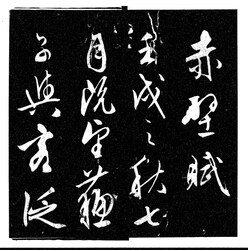 赤壁賦
壬戌之秋七
月既望蘇
子與客泛